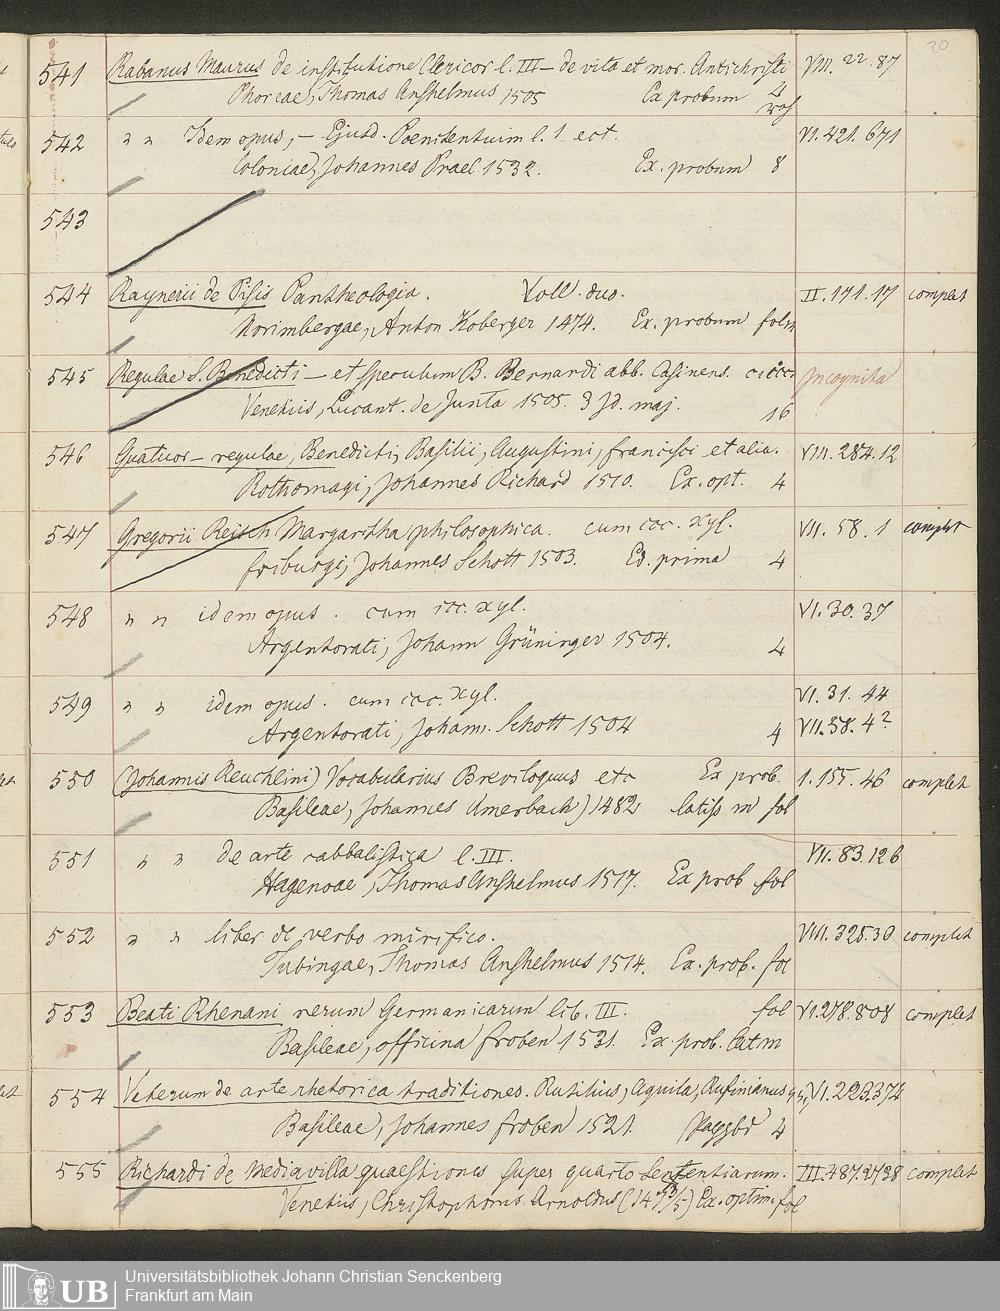 20
541 Rabanus Maurus de institutione Clericor l. III – de vita et mor. Antichristi VIII. 22. 87
Phorcae, Thomas Anshelmus 1505 Ex probum 4
542 " " Idem opus, – Ejusd. Poenitentium l. 1. ect. VI. 421. 671
Coloniae, Johannes Prael 1532. Ex. probum 8
543
544 Raynerii de Pisis Pantheologia. Voll. duo. II. 171. 17 complet
Norimbergae, Anton Koberger 1474. Ex. probum folm
545 Regulae S. Benedicti – et speculum B. Bernardi abb. Casinens. Incognita
Venetiis, Lucant. de Junta 1505. 3 Jd. maj. 16
546 Quatuor – regulae, Benedicti, Basilii, Augustini, francisci et alia. VIII. 284. 12
Rothomagi, Johannes Richard 1510. Ex. opt. 4
547 Gregorii Reisch Margaritha philosophica. cum icc. xyl. VII. 58. 1 complet
friburgi, Johannes Schott 1503. Ed. prima 4
548 " " idem opus. cum icc. xyl. VI. 30. 37
Argentorati, Johann Grüninger 1504. 4
549 " " idem opus. cum icc. xyl. VI. 31. 44
Argentorati, Johann. Schott 1504 4 VII. 58. 4²
550 (Johannis Reuchlini) Vocabularius Breviloquus etc Ex prob. 1. 155. 46 complet
Basileae, Johannes Amerbach) 1482 latiss m fol
551 " " de arte cabbalistica l. III. VII. 83. 126
Hagenoae, Thomas Anshelmus 1517. Ex prob fol
552 " " liber de verbo mirifico. VIII. 325. 30 complet
Tubingae, Thomas Anshelmus 1514. Ex. prob. fol
553 Beati Rhenani rerum Germanicarum lib. III. fol VI. 278. 808 complet
Basileae, officina froben 1531. Ex. prob. lat m
554 Veterum de arte rhetorica traditiones. Rutilius, Aquila, Rufinianus VI. 223. 374
Basileae, Johannes froben 1521. 4
555 Richardi de Mediavilla quaestiones super quarto sententiarum. III. 487. 2738 complet
Venetiis, Christophorus Arnoldus Ex. optim. fol
UB Universitätsbibliothek Johann Christian Senckenberg
Frankfurt am Main